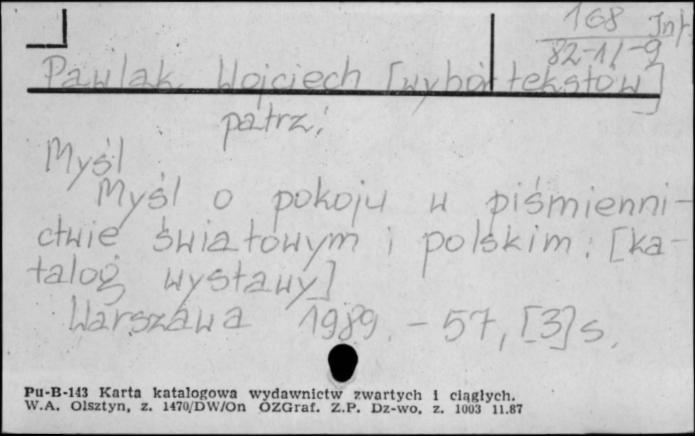 168 Inf.
82-1/-9
Pawlak, Wojciech [wybór tekstów]
patrz:
Myśl
Myśl o pokoju w piśmienni-
ctwie światowym i polskim : [ka-
talog wystawy]
Warszawa 1989. - 57, [3] s.
Pu-B-143 Karta katalogowa wydawnictw zwartych i ciągłych.
W.A. Olsztyn, z. 1470/DW/On OZGraf. Z.P. Dz-wo, z. 1003 11.87